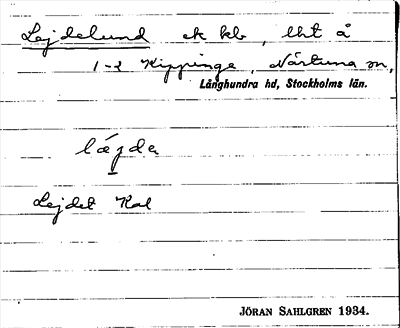 Lejdelund ek kb, lht å
1-2 Kippinge, Närtuna sn,
Långhundra hd, Stockholms län.
lägda
Lejdet Kal
JÖRAN SAHLGREN 1934.